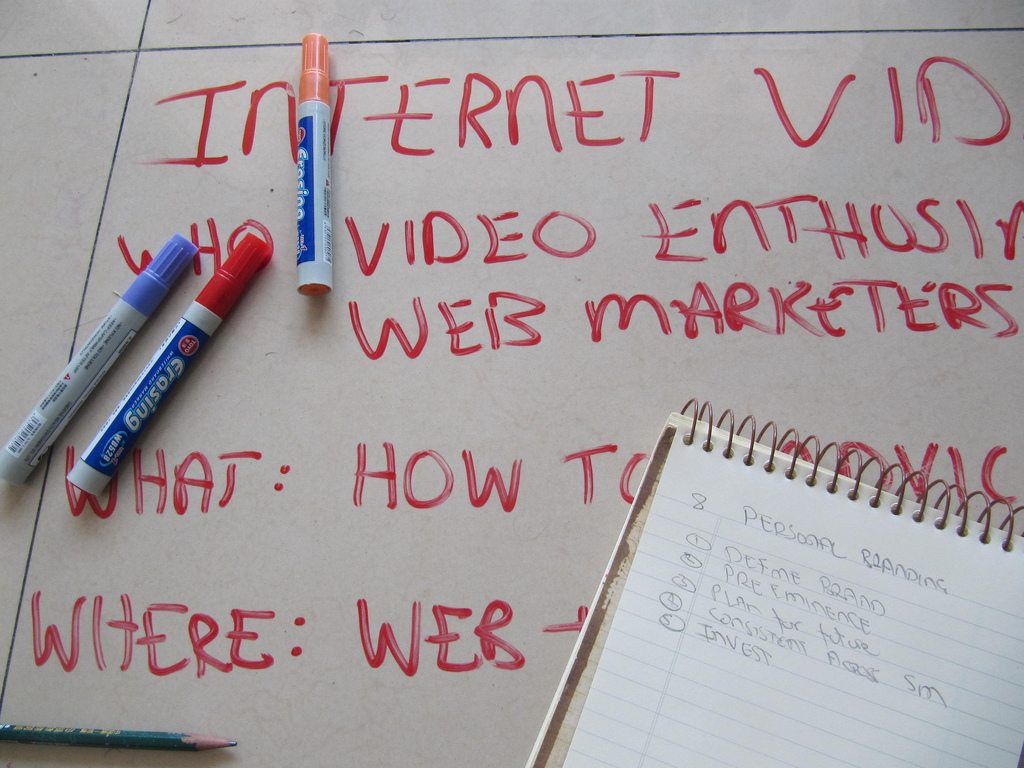 INTERNET VID
WHO VIDEO ENTHUSI
WEB MARKETERS
WHAT: HOW TO
WHERE: WEB
8 PERSONAL BRANDING
① DEFINE BRAND
② PRE EMINENCE
③ PLAN for future
④ CONSISTENT ACROSS SM
⑤ INVEST
Erasing
TOYO
Erasing
WHITEBOARD MARKER
WB528